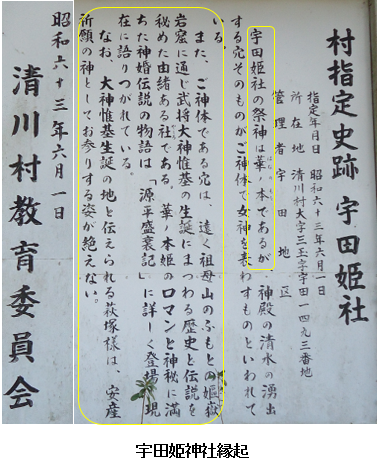 村指定史跡 宇田姫社
指定年月日 昭和六十三年六月一日
所在地 清川村大字三玉字宇田一四九三番地
管理者 宇田地区
宇田姫社の祭神は華ノ本であるが、神殿の清水の湧出
する穴そのものがご神体で女神を表わすものといわれて
いる。
また、ご神体である穴は、遠く祖母山のふもとの嫗嶽
岩窟に通じ武将大神惟基の生誕にまつわる歴史と伝説を
秘めた由緒ある社である。華ノ本姫のロマンと神秘に満
ちた神婚伝説の物語は「源平盛衰記」に詳しく登場し現
在に語りつがれている。
なお、大神惟基生誕の地と伝えられる萩塚様は、安産
祈願の神としてお参りする姿が絶えない。
昭和六十三年六月一日
清川村教育委員会
宇田姫神社縁起